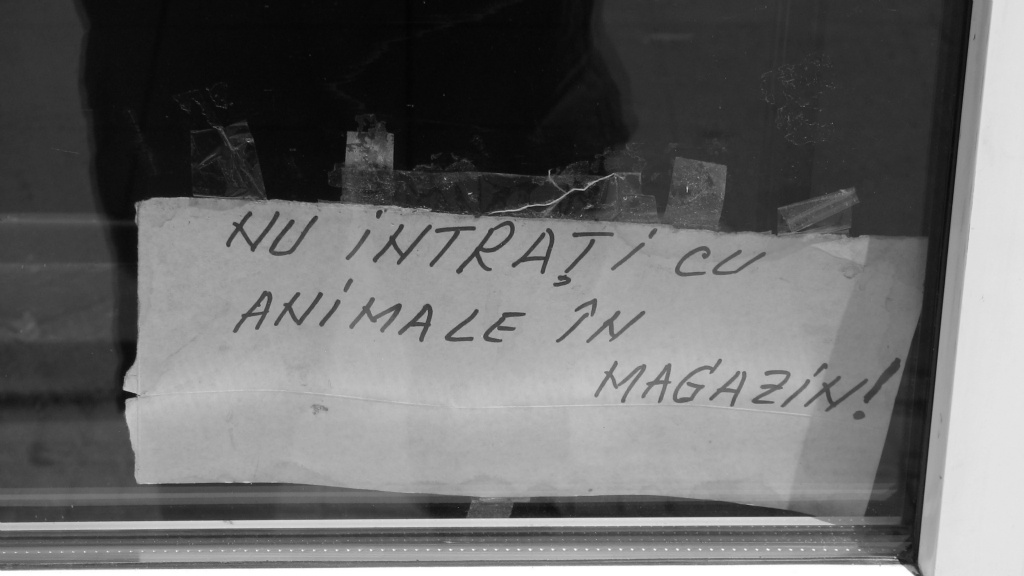 NU INTRAȚI CU
ANIMALE ÎN
MAGAZIN!